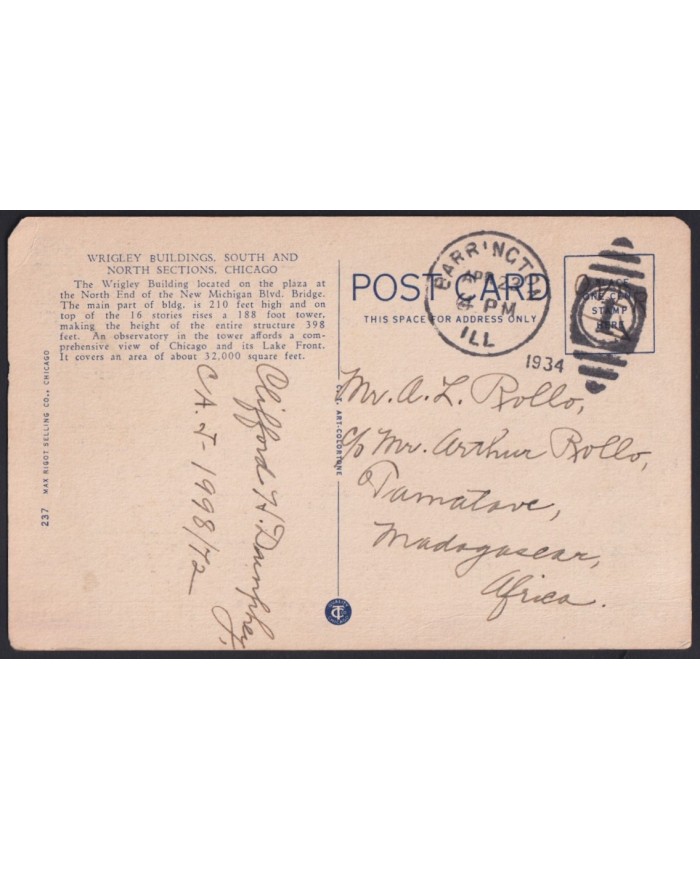 WRIGLEY BUILDINGS, SOUTH AND
NORTH SECTIONS, CHICAGO
The Wrigley Building located on the plaza at
the North End of the New Michigan Blvd. Bridge.
The main part of bldg. is 210 feet high and on
top of the 16 stories rises a 188 foot tower,
making the height of the entire structure 398
feet. An observatory in the tower affords a com-
prehensive view of Chicago and its Lake Front.
It covers an area of about 32,000 square feet.
237 MAX RIGOT SELLING CO., CHICAGO
Clifford H.
C.A.J-1998/72
C.T. ART-COLORTONE
POST CARD
THIS SPACE FOR ADDRESS ONLY
BARRINGTON
APR
PM
ILL
1934
PLACE
ONE CENT
STAMP
HERE
Mr. A. L. Rollo,
c/o Mr. Arthur Rollo,
Tamatave,
Madagascar,
Africa.